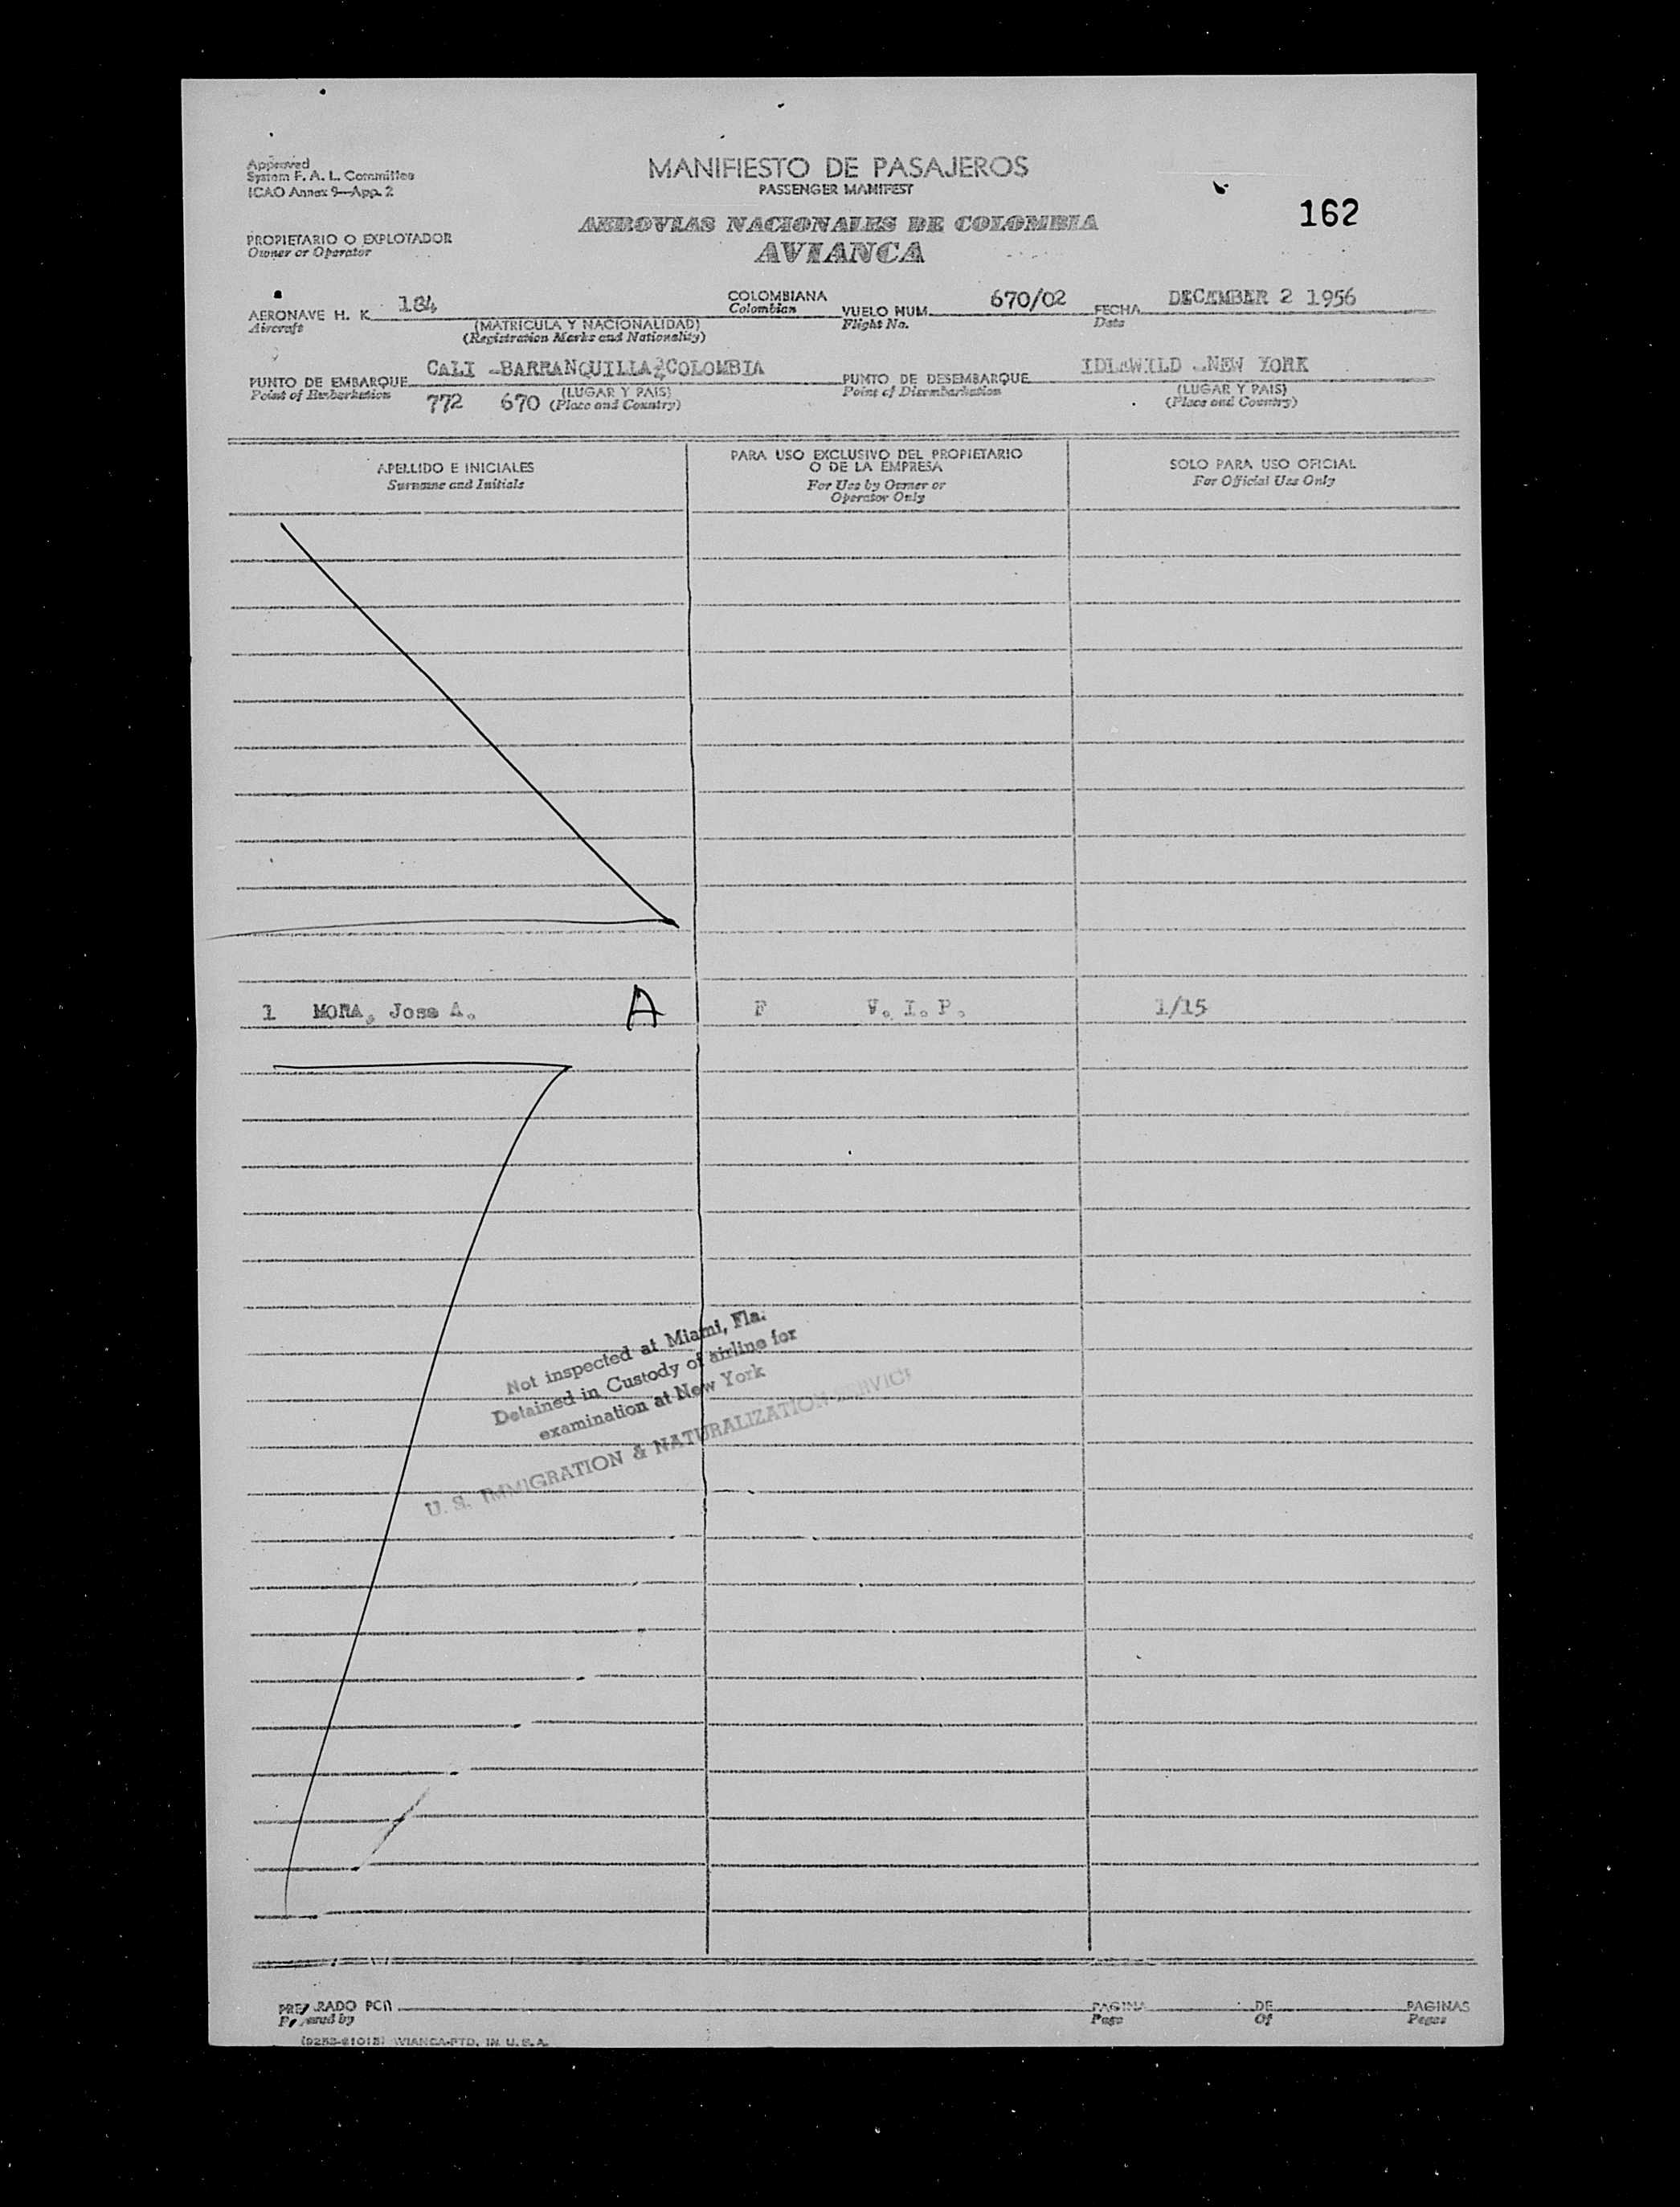 Approved
System F. A. L. Committee
ICAO Annex 9—App. 2
MANIFIESTO DE PASAJEROS
PASSENGER MANIFEST
162
AEROVIAS NACIONALES DE COLOMBIA
AVIANCA
PROPIETARIO O EXPLOTADOR
Owner or Operator
AERONAVE H. K. 184 COLOMBIANA VUELO NUM. 670/02 FECHA DECEMBER 2 1956
Aircraft (MATRICULA Y NACIONALIDAD) Colombian Flight No. Date
(Registration Marks and Nationality)
PUNTO DE EMBARQUE CALI -BARRANQUILLA COLOMBIA PUNTO DE DESEMBARQUE IDLEWILD -NEW YORK
Point of Embarkation (LUGAR Y PAIS) Point of Disembarkation (LUGAR Y PAIS)
772 670 (Place and Country) (Place and Country)
APELLIDO E INICIALES
Surname and Initials
PARA USO EXCLUSIVO DEL PROPIETARIO
O DE LA EMPRESA
For Use by Owner or
Operator Only
SOLO PARA USO OFICIAL
For Official Use Only
1 MORA, Jose A. A F V. I. P. 1/15
Not inspected at Miami, Fla.
Detained in Custody of airline for
examination at New York
U. S. IMMIGRATION & NATURALIZATION SERVICE
PREPARADO POR PAGINA DE PAGINAS
Prepared by Page Of Pages
AVIANCA-PTD. IN U. S. A.